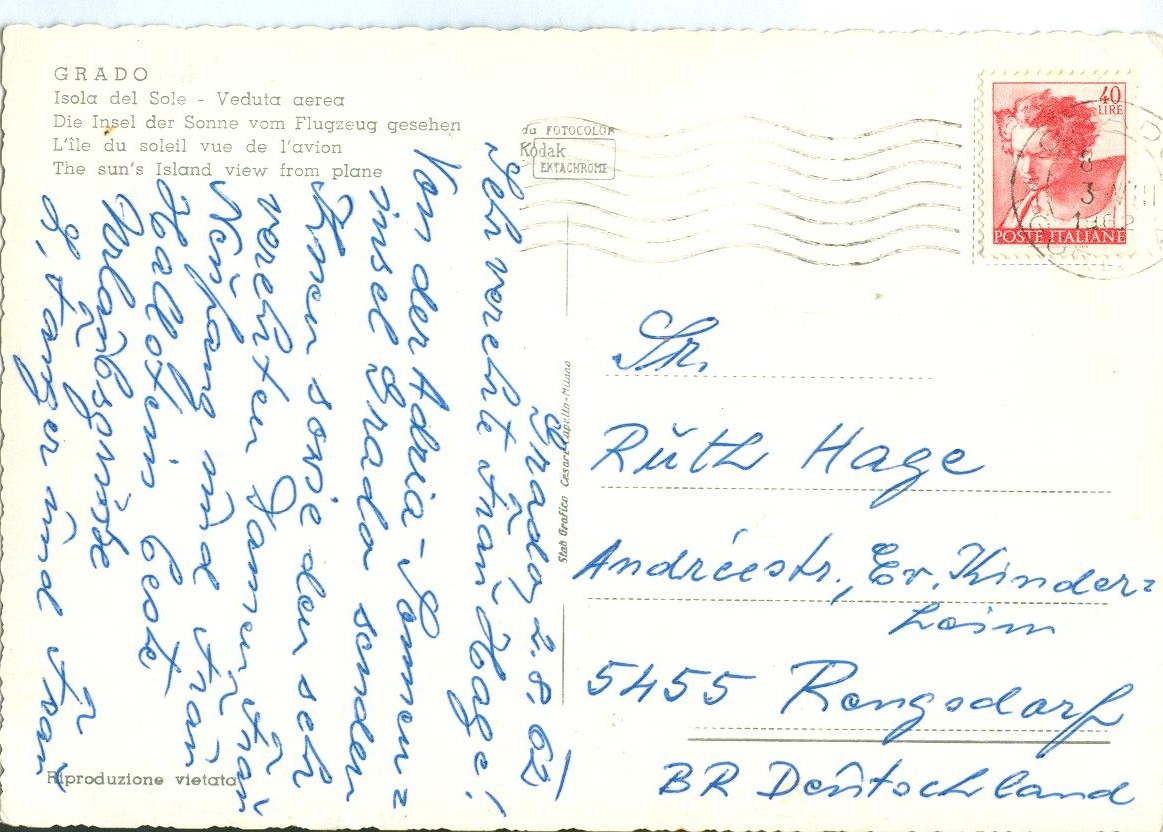 GRADO
Isola del Sole - Veduta aerea
Die Insel der Sonne vom Flugzeug gesehen
L'île du soleil vue de l'avion
The sun's Island view from plane
da FOTOCOLOR
Kodak
EKTACHROME
40
LIRE
POSTE ITALIANE
8
3
Grado, 2.8.62
Sehr verehrte Frau Hage!
Von der Adria-Sonnen=
insel Grado senden
Ihnen sowie den sehr
verehrten Damen Frau
und Frau
beste
Urlaubsgrüße
und Frau
Stab Grafico Cesare Capello-Milano
Ruth Hage
Andréestr., Ev. Kinder=
heim
5455 Rengsdorf
BR Deutschland
Riproduzione vietata